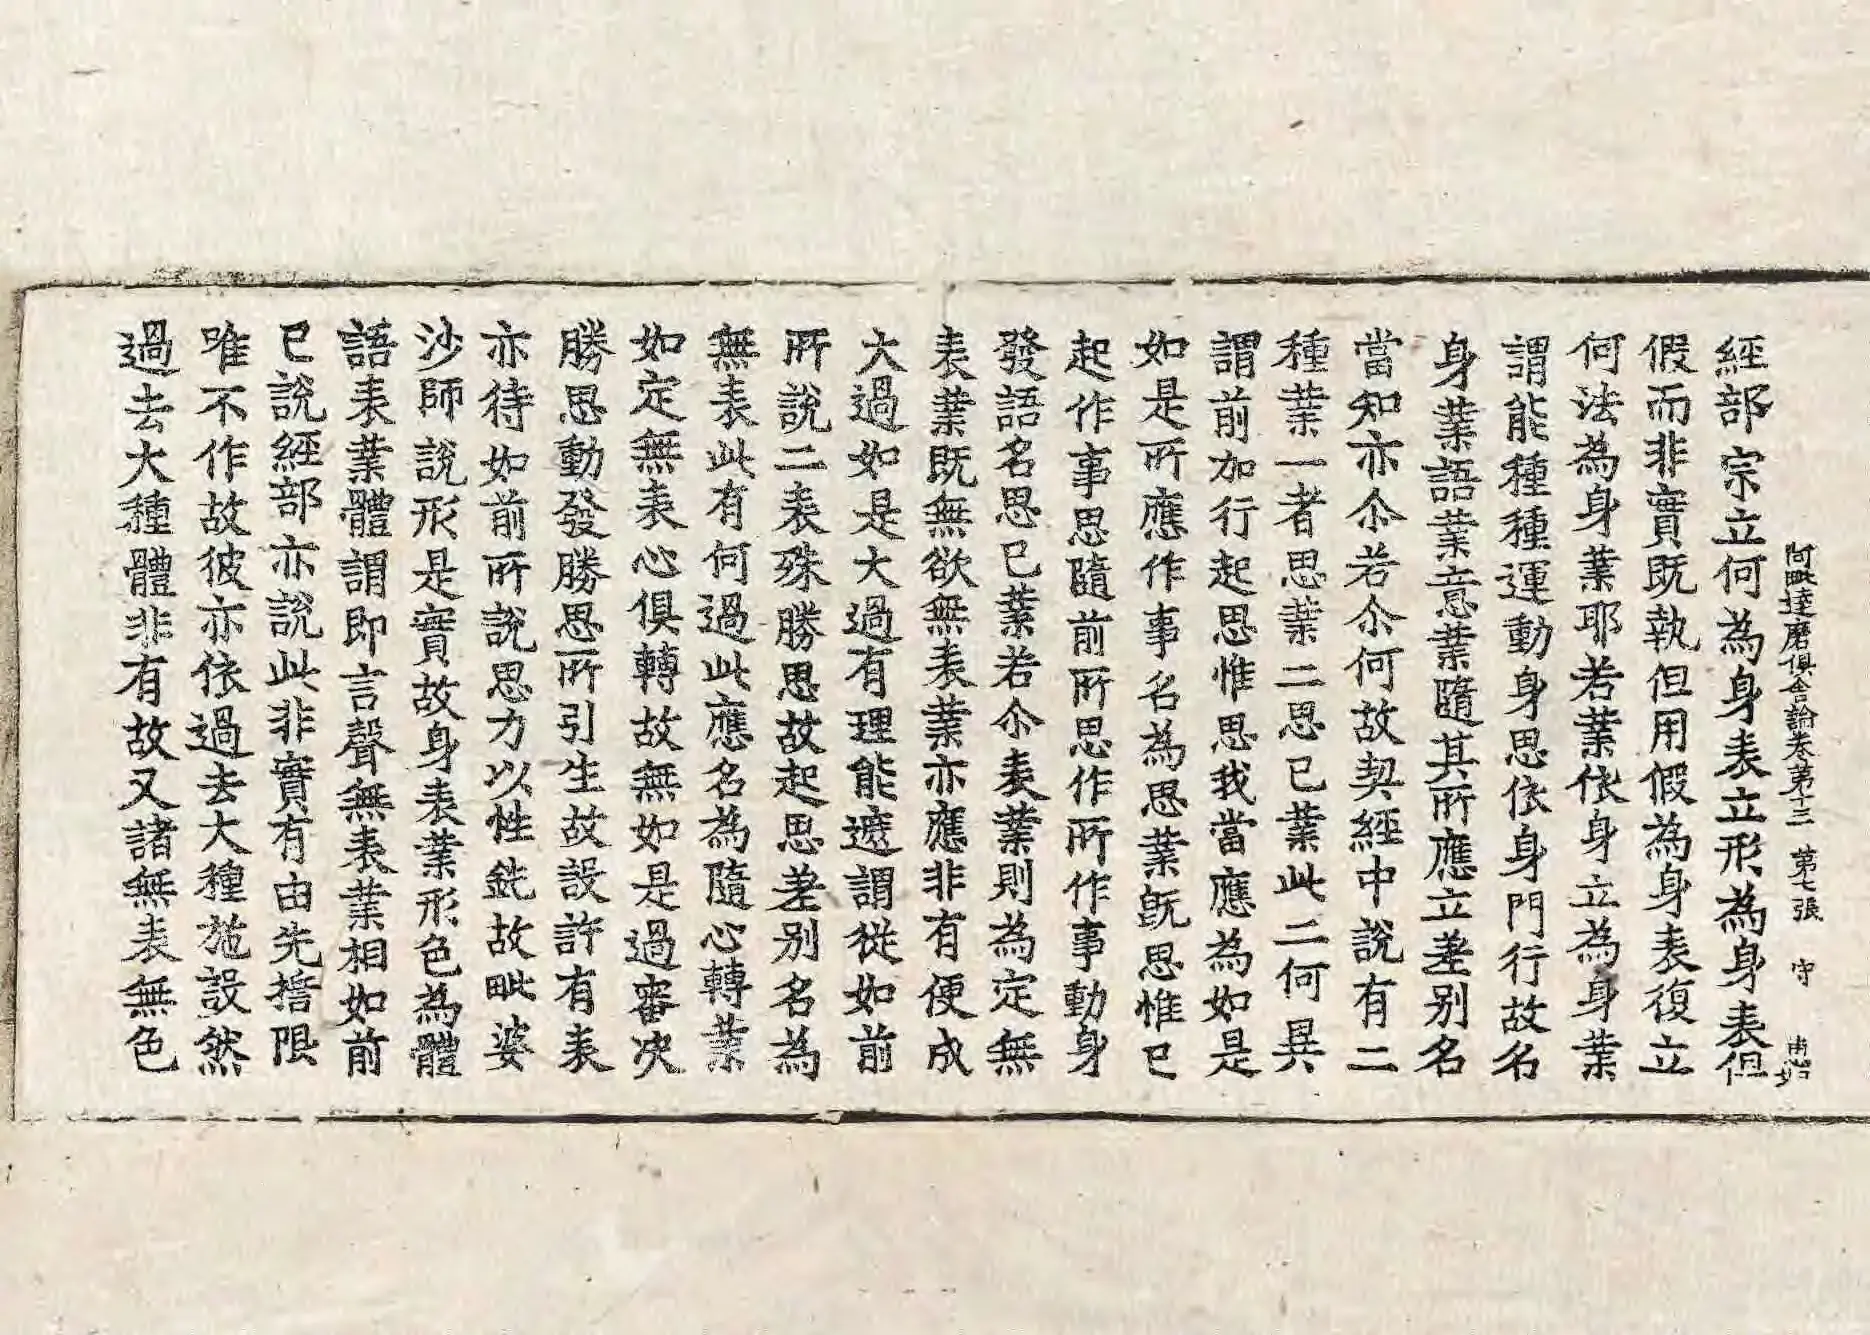 阿毗達磨俱舍論卷第十三 第七張 守
經部宗立何為身表立形為身表但
假而非實既執但用假為身表復立
何法為身業耶若業依身立為身業
謂能種種運動身思依身門行故名
身業語業意業隨其所應立差別名
當知亦尒若尒何故契經中說有二
種業一者思業二思已業此二何異
謂前加行起思惟思我當應為如是
如是所應作事名為思業既思惟已
起作事思隨前所思作所作事動身
發語名思已業若尒表業則為定無
表業既無欲無表業亦應非有便成
大過如是大過有理能遮謂從如前
所說二表殊勝思故起思差別名為
無表此有何過此應名為隨心轉業
如定無表心俱轉故無如是過審決
勝思動發勝思所引生故設許有表
亦待如前所說思力以性鈍故毗婆
沙師說形是實故身表業形色為體
語表業體謂即言聲無表業相如前
已說經部亦說此非實有由先誓限
唯不作故彼亦依過去大種施設然
過去大種體非有故又諸無表無色